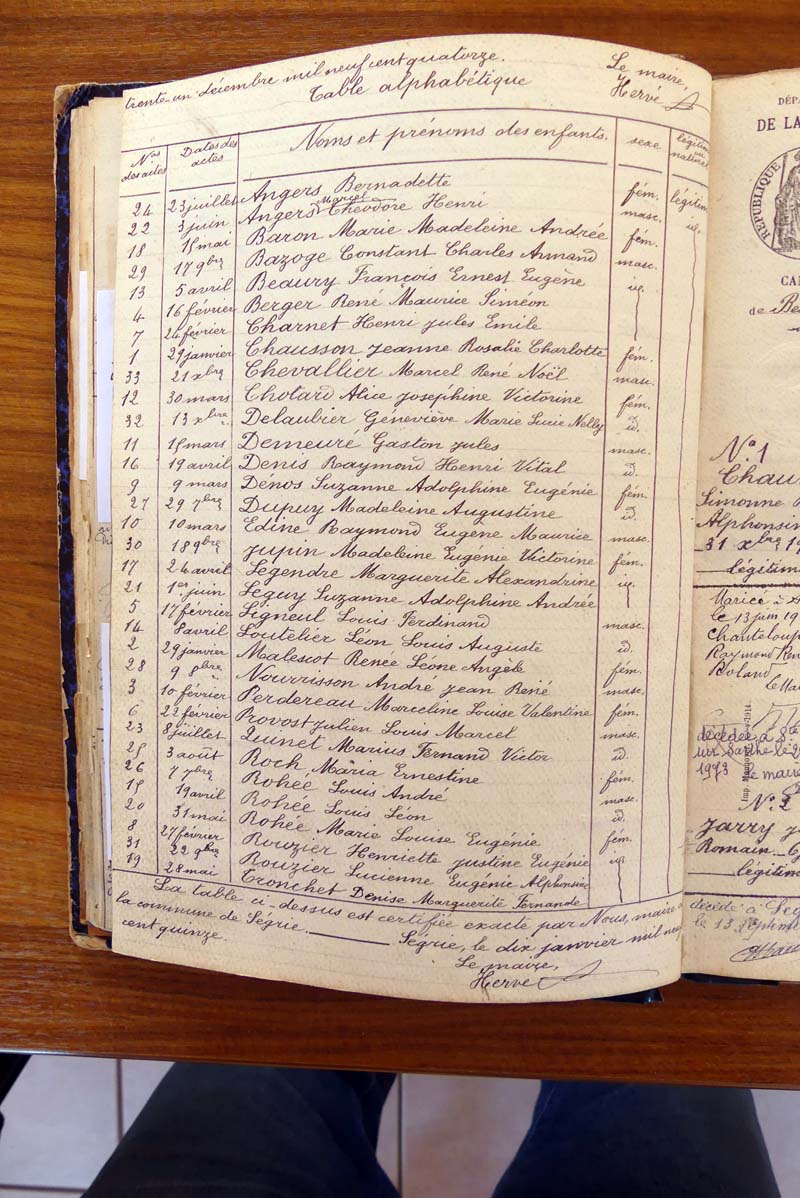 trente-un décembre mil neuf cent quatorze.
Le maire,
Table alphabétique
Hervé
Nos des actes Dates des actes Noms et prénoms des enfants. sexe légitime ou naturel
24 23 juillet Angers Bernadette fém. légitim
Marcel
22 3 juin Angers Théodore Henri masc. id.
18 15 mai Baron Marie Madeleine Andrée fém.
29 17 9bre Bazoge Constant Charles Armand masc.
13 5 avril Beaury François Ernest Eugène id.
4 16 février Berger René Maurice Siméon
7 24 février Charnet Henri Jules Emile
1 29 janvier Chausson Jeanne Rosalie Charlotte fém.
33 21 xbre Chevallier Marcel René Noël masc.
12 30 mars Chotard Alice Joséphine Victorine fém.
32 13 xbre Delaubier Géneviève Marie Lucie Nelly id.
11 15 mars Demeuré Gaston Jules masc.
16 19 avril Denis Raymond Henri Vital id.
9 9 mars Denos Suzanne Adolphine Eugénie fém.
27 29 7bre Dupuy Madeleine Augustine id.
10 10 mars Edine Raymond Eugène Maurice masc.
30 18 9bre Jupin Madeleine Eugénie Victorine fém.
17 26 avril Legendre Marguerite Alexandrine id.
21 1er juin Leguy Suzanne Adolphine Andrée
5 17 février Ligneul Louis Ferdinand masc.
14 8 avril Loutelier Léon Louis Auguste id.
2 29 janvier Malescot Renée Léone Angèle fém.
28 9 8bre Nourrisson André Jean René masc.
3 10 février Perdereau Marceline Louise Valentine fém.
6 22 février Provost Julien Louis Marcel masc.
23 8 juillet Quinet Marius Fernand Victor id.
25 3 août Roch Maria Ernestine fém.
26 7 7bre Rohée Louis André masc.
15 19 avril Rohée Louis Léon id.
20 31 mai Rohée Marie Louise Eugénie fém.
8 27 février Rouzier Henriette Justine Eugénie id.
31 22 9bre Rouzier Lucienne Eugénie Alphonsine
19 28 mai Tronchet Denise Marguerite Fernande
La table ci-dessus est certifiée exacte par Nous, maire
la commune de Ségrie. Ségrie, le dix janvier mil neuf
cent quinze.
Le maire,
Hervé
DÉP
DE LA
RÉPUBLIQUE
CA
de Be
N° 1
Chau
Simonne
Alphonsin
31 xbre 19
légitim
Mariée à
le 13 juin 19
Chanteloup
Raymond
Roland
le Ma
Imp. 1914
décédée à
sur Sarthe le
1973 le maire
N° 2
Jarry J
Romain
légitim
décédé à Ség
le 13 septem